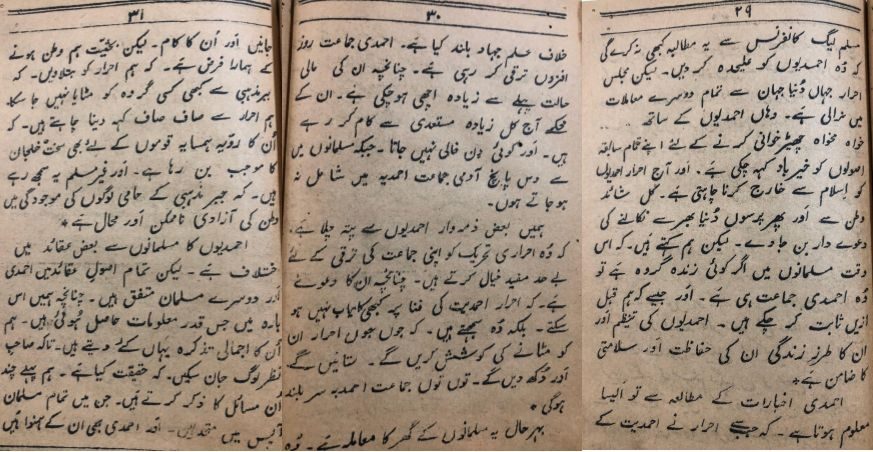 ۲۹
مسلم لیگ کانفرنس سے یہ مطالبہ کبھی نہ کرے گی
کہ وُہ احمدیوں کو علیحدہ کر دیں۔ لیکن مجلس
احرار جہاں دُنیا جہان سے تمام دوسرے معاملات
میں نرالی ہے۔ وہاں احمدیوں کے ساتھ
خواہ مخواہ چھیڑ خوانی کرنے کے لئے اپنے تمام سابقہ
اصولوں کو خیر یاد کہہ چکی ہے۔ اور آج احرار احمدیوں
کو اِسلام سے خارج کرنا چاہتی ہے۔ کل شائد
وطن سے اور پھر پرسوں دُنیا بھر سے نکالنے کی
دعوے دار بن جاوے۔ لیکن ہم کہتے ہیں۔ کہ اس
وقت مسلمانوں میں اگر کوئی زندہ گروہ ہے تو
وُہ احمدی جماعت ہی ہے۔ اور جیسے کہ ہم قبل
ازیں ثابت کر چکے ہیں۔ احمدیوں کی تنظیم اور
ان کا طرزِ زندگی ان کی حفاظت اور سلامتی
کا ضامن ہے*
احمدی اخبارات کے مطالعہ سے تو اَیسا
معلوم ہوتا ہے۔ کہ جب سے احرار نے احمدیت کے
۳۰
خلاف علم جہاد بلند کیا ہے۔ احمدی جماعت روز
افزوں ترقی کر رہی ہے۔ چنانچہ ان کی مالی
حالت پہلے سے زیادہ اچھی ہو چکی ہے۔ ان کے
محکمے آج کل زیادہ مستعدی سے کام کر رہے
ہیں۔ اور کوئی دِن خالی نہیں جاتا۔ جبکہ مسلمانوں میں
سے دس پانچ آدمی جماعت احمدیہ میں شامل نہ
ہو جاتے ہوں۔
ہمیں بعض ذمہ وار احمدیوں سے پتہ چلا ہے۔
کہ وُہ احراری تحریک کو اپنی جماعت کی ترقی کے لئے
بے حد مفید خیال کرتے ہیں۔ چنانچہ ان کا دعوٰے
ہے۔ کہ احرار احمدیت کی فنا پر کبھی کامیاب نہیں ہو
سکتے۔ بلکہ وُہ سمجھتے ہیں۔ کہ جوں جوں احرار ان
کو مٹانے کی کوشش کریں گے۔ ستائیں گے۔
اور دُکھ دیں گے۔ توں توں جماعت احمدیہ سر بلند
ہو گی*
بہر حال یہ مسلمانوں کے گھر کا معاملہ ہے۔ وُہ
۳۱
جانیں اَور اُن کا کام۔ لیکن بحثیت ہم وطن ہونے
کے ہمارا فرض ہے۔ کہ ہم احرار کو جتلا دیں۔ کہ
جبر مذہبی سے کبھی کسی گروہ کو مٹایا نہیں جا سکا۔
ہم احرار سے صاف صاف کہہ دینا چاہتے ہیں۔ کہ
اُن کا رویّہ ہمسایہ قوموں کے لئے بھی سخت خلجان
کا موجب بن رہا ہے۔ اور غیر مسلم یہ سمجھ رہے
ہیں۔ کہ جبر مذہبی کے حامی لوگوں کی موجودگی میں
وطن کی آزادی ناممکن اَور محال ہے*
احمدیوں کا مسلمانوں سے بعض عقائد میں
ختلاف ہے۔ لیکن تمام اصولی عقائد میں احمدی
اَور دوسرے مسلمان متفق ہیں۔ چنانچہ ہمیں اس
بارہ میں جس قدر معلومات حاصل ہُوئی ہیں۔ ہم
اُن کا اجمالی تذکرہ یہاں کئے دیتے ہیں۔ تاکہ صاحب
نظر لوگ جان سکیں۔ کہ حقیقت کیا ہے۔ ہم پہلے چند
اُن مسائل کا ذکر کرتے ہیں۔ جن میں تمام مسلمان
آپس میں متحد ہیں۔ اور احمدی بھی ان کے ہمنوا ہیں